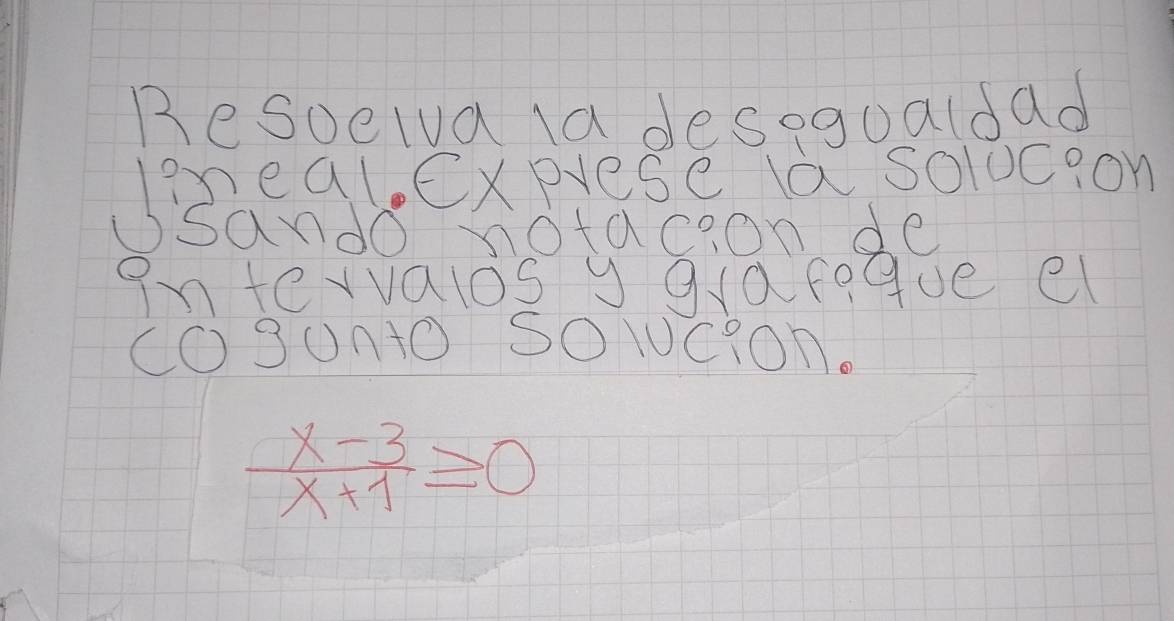 Resuelva la desigualdad
lineal. Exprese la solucion
Usando notacion de
intervalos y grafique el
cogunto solucion.
x-3
x+1 ≥0